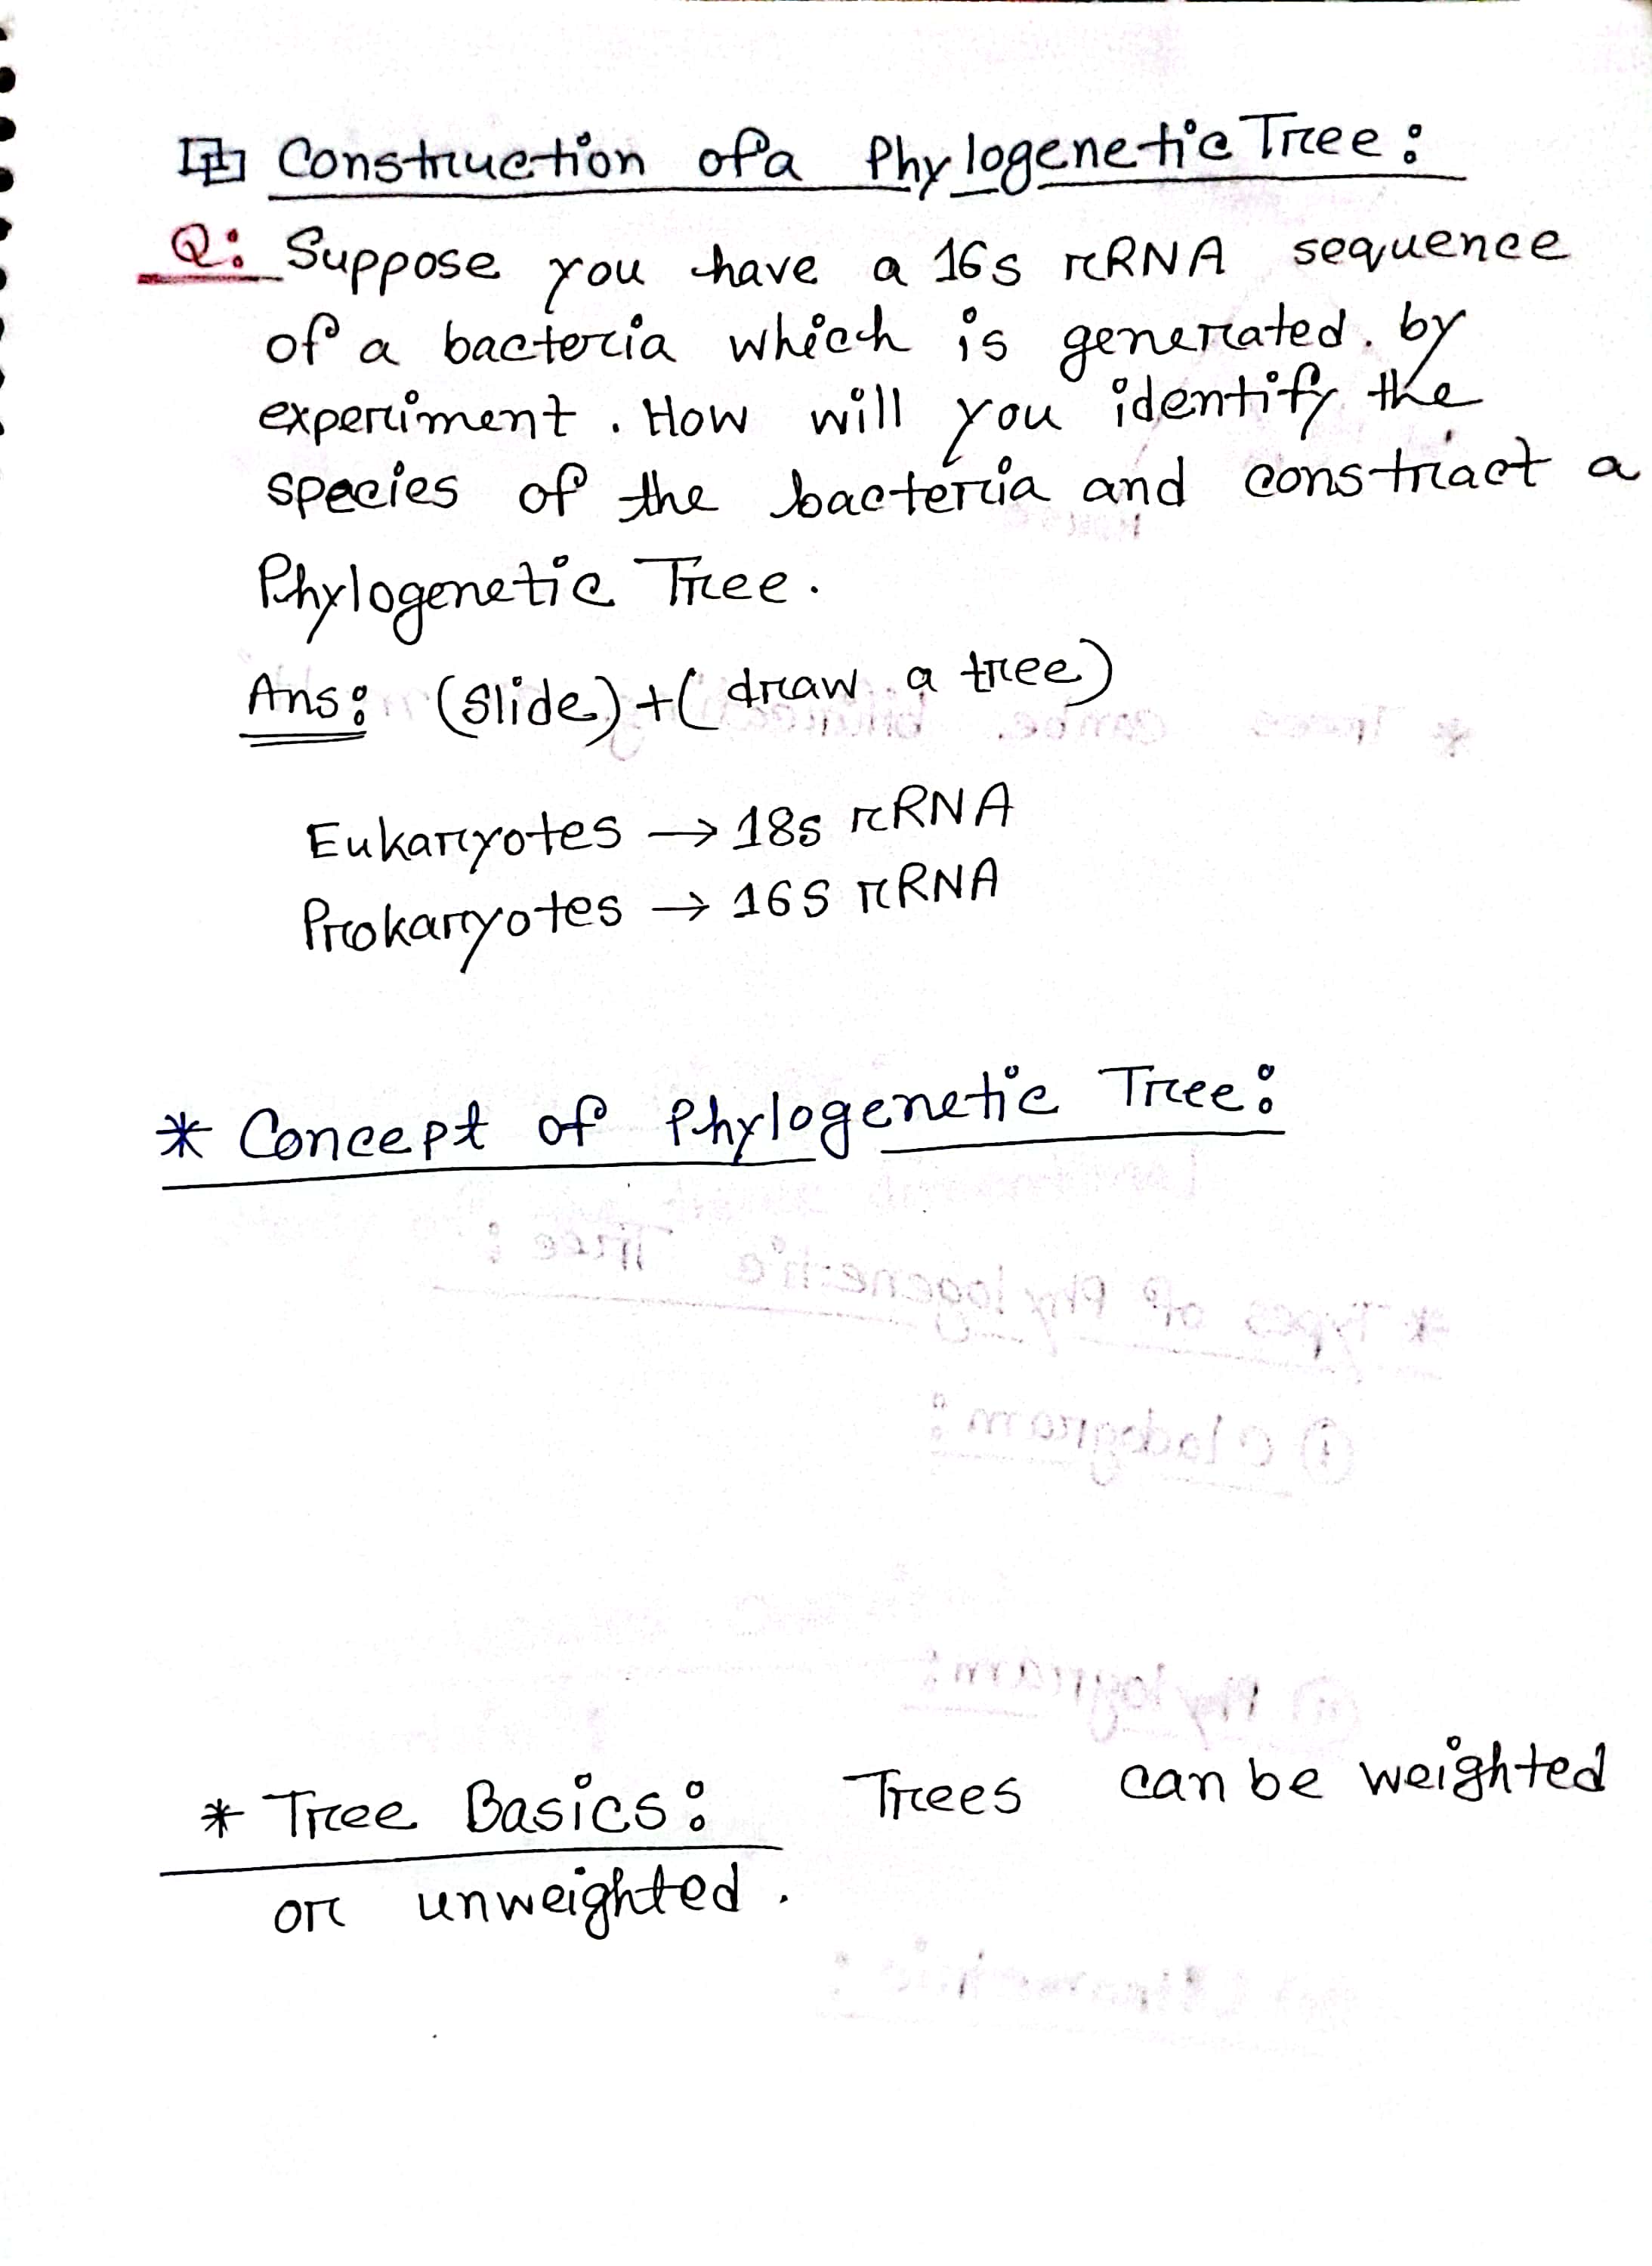 Construction of a Phylogenetic Tree:
Q: Suppose you have a 16s rRNA sequence
of a bacteria which is generated. by
experiment. How will you identify the
species of the bacteria and constract a
Phylogenetic Tree.
Ans: (Slide) + (draw a tree)
Eukaryotes → 18s rRNA
Prokaryotes → 16S rRNA
* Concept of Phylogenetic Tree:
* Tree Basics: Trees can be weighted
or unweighted.